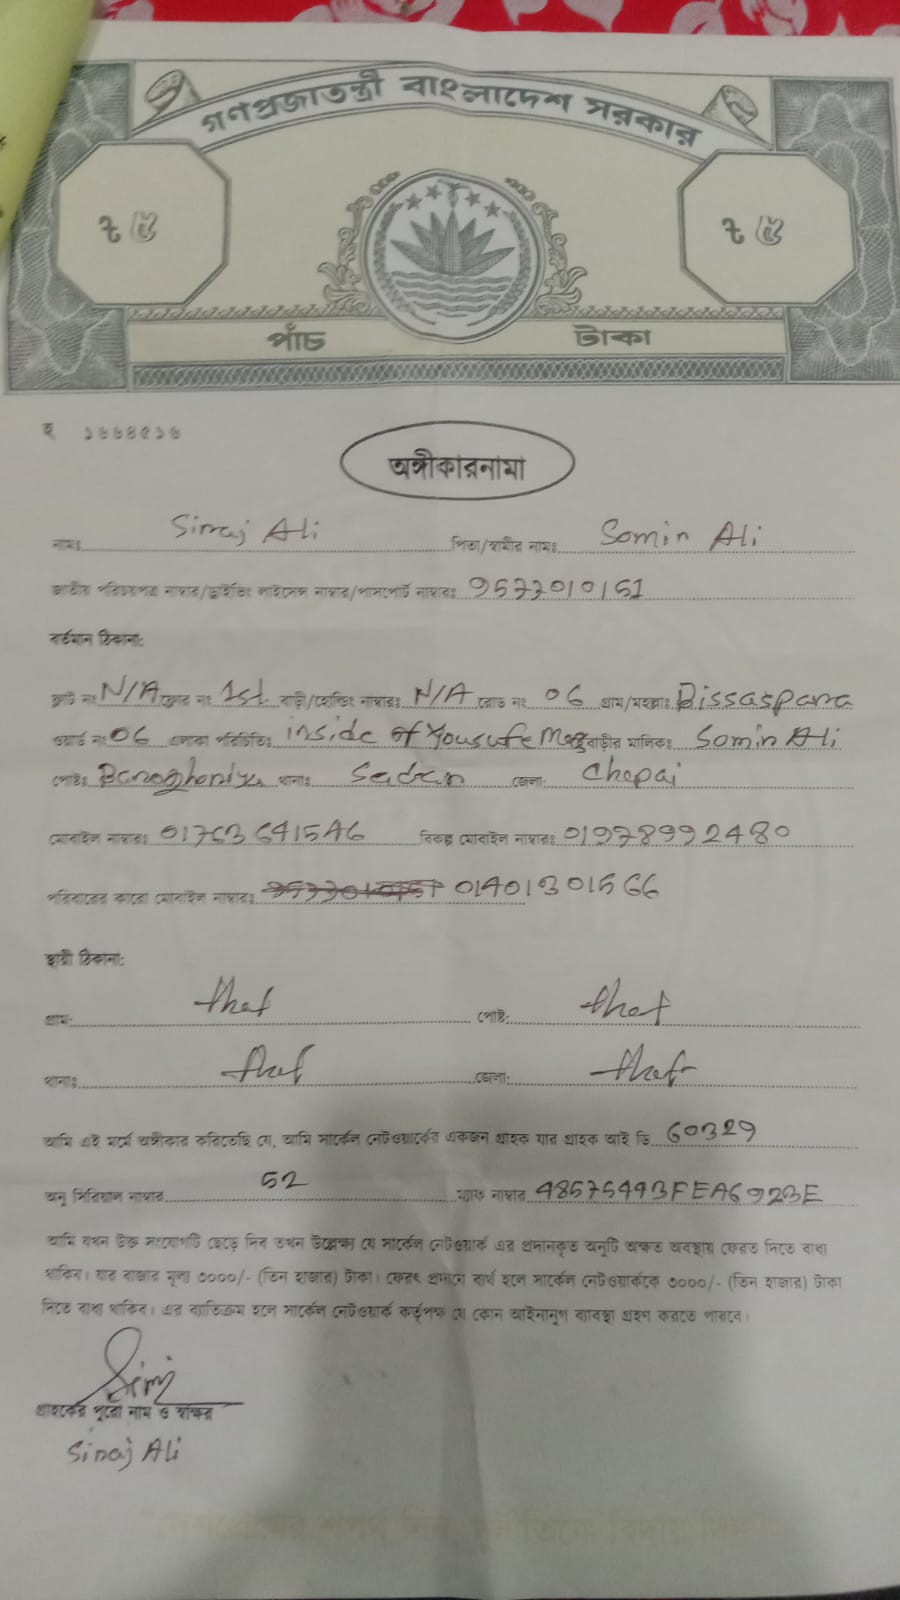 গণপ্রজাতন্ত্রী বাংলাদেশ সরকার
৳ ৫ ৳ ৫
পাঁচ টাকা
হ ১৬৬৪৫১৬
অঙ্গীকারনামা
নামঃ Siraj Ali পিতা/স্বামীর নামঃ Somin Ali
জাতীয় পরিচয়পত্র নাম্বার/ড্রাইভিং লাইসেন্স নাম্বার/পাসপোর্ট নাম্বারঃ
বর্তমান ঠিকানা:
ফ্লাট নং N/A ফ্লোর নং 1st বাড়ী/হোল্ডিং নাম্বারঃ N/A রোড নং 06 গ্রাম/মহল্লাঃ Bissaspara
ওয়ার্ড নং 06 এলাকা পরিচিতিঃ inside of Yousufe বাড়ীর মালিকঃ Somin Ali
পোষ্টঃ থানাঃ Sadar জেলা: Chapai
মোবাইল নাম্বারঃ 01763641546 বিকল্প মোবাইল নাম্বারঃ 01978992480
পরিবারের কারো মোবাইল নাম্বারঃ 01401301566
স্থায়ী ঠিকানা:
গ্রাম: that পোষ্ট: that
থানাঃ that জেলা: that
আমি এই মর্মে অঙ্গীকার করিতেছি যে, আমি সার্কেল নেটওয়ার্কের একজন গ্রাহক যার গ্রাহক আই ডি 60329
অনু সিরিয়াল নাম্বার 52 ম্যাক নাম্বার 48575443FEA6923E
আমি যখন উক্ত সংযোগটি ছেড়ে দিব তখন উল্লেখ্য যে সার্কেল নেটওয়ার্ক এর প্রদানকৃত অনুটি অক্ষত অবস্থায় ফেরত দিতে বাধ্য
থাকিব। যার বাজার মূল্য ৩০০০/- (তিন হাজার) টাকা। ফেরৎ প্রদানে ব্যর্থ হলে সার্কেল নেটওয়ার্ককে ৩০০০/- (তিন হাজার) টাকা
দিতে বাধ্য থাকিব। এর ব্যতিক্রম হলে সার্কেল নেটওয়ার্ক কর্তৃপক্ষ যে কোন আইনানুগ ব্যাবস্থা গ্রহণ করতে পারবে।
Siraj
গ্রাহকের পুরো নাম ও স্বাক্ষর
Siraj Ali